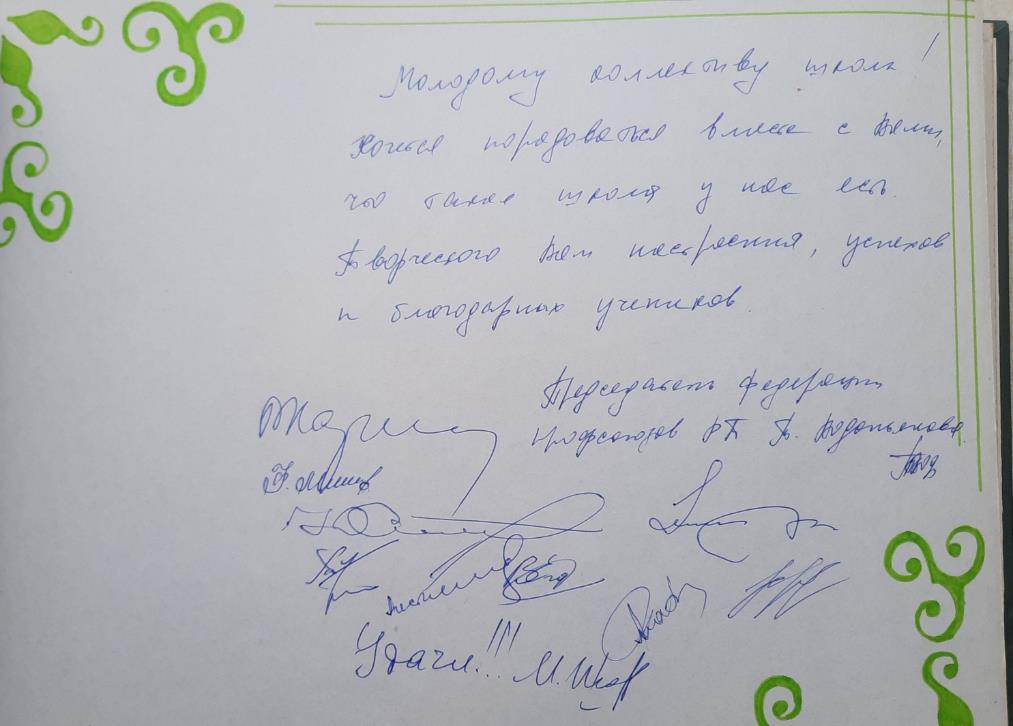 Молодому коллективу школы!
Хочется порадоваться вместе с Вами,
что такая школа у нас есть.
Творческого Вам настроения, успехов
и благодарных учеников.
Председатель федерации
профсоюзов РТ Т. Водопьянова
Удачи!!!